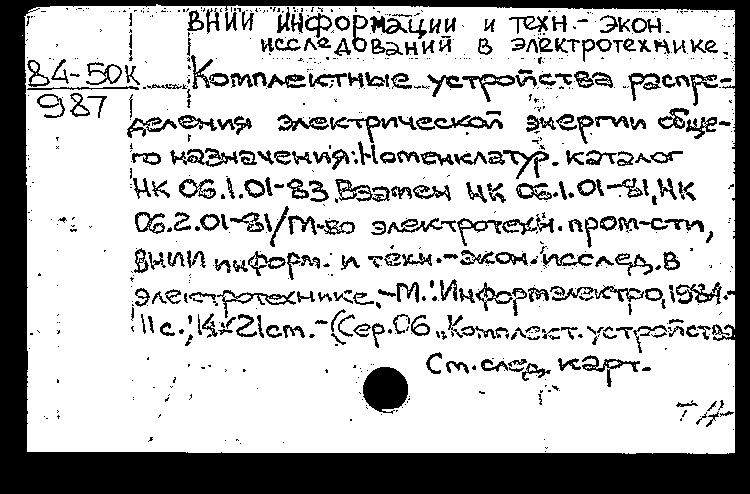 ВНИИ информации и техн.- экон.
исследований в электротехнике.
84-50К
987
Комплектные устройства распре-
деления электрической энергии обще-
го назначения: Номенклатур. каталог
НК 06.1.01-83. Взамен НК 06.1.01-81, НК
06.2.01-81/М-во электротехн. пром-сти,
ВНИИ информ. и техн.-экон. исслед. в
электротехнике.-М.: Информэлектро, 1984.-
11с.; 14х21cm.-(Сер.06 „Комплект. устройства
См. след. карт.
ТА